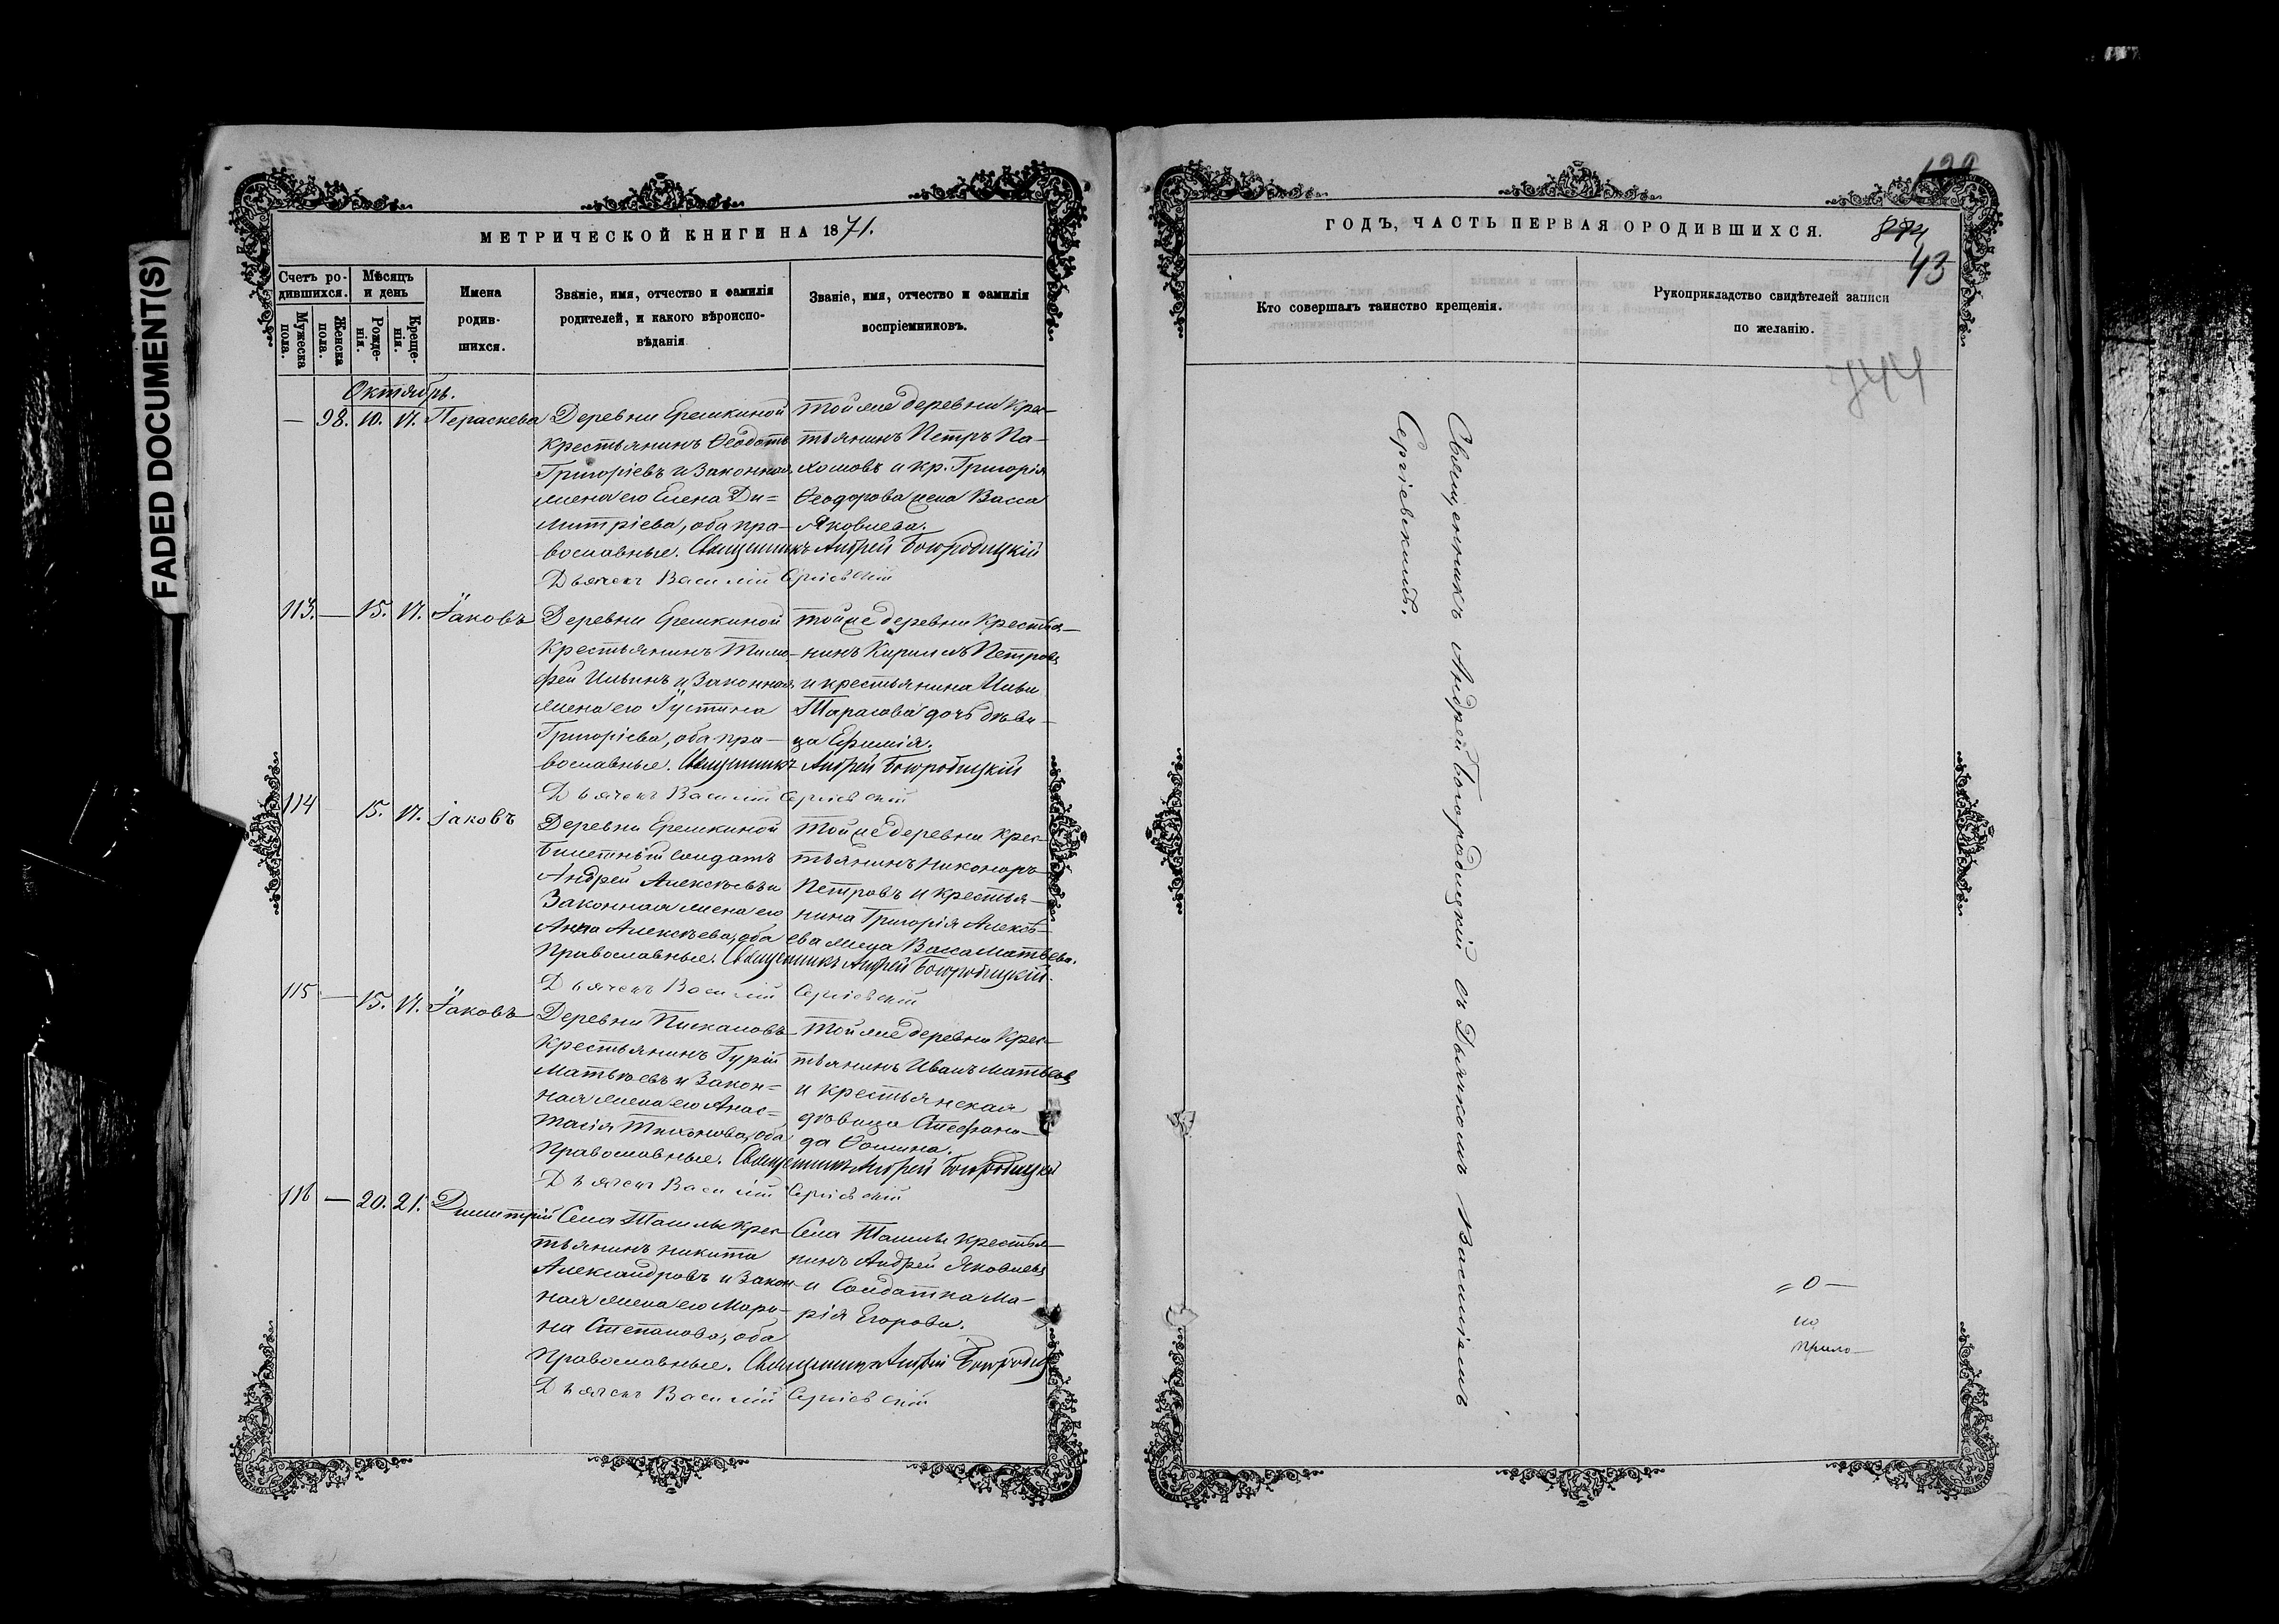 FADED DOCUMENT(S)
МЕТРИЧЕСКОЙ КНИГИ НА 1871.
Счетъ ро-
дившихся.
Мѣсяцъ
и день
Мужеска
пола.
Женска
пола.
Рожде-
нія.
Креще-
нія.
Имена
родив-
шихся.
Званіе, имя, отчество и фамилія
родителей, и какого вѣроиспо-
вѣданія
Званіе, имя, отчество и фамилія
воспріемниковъ.
Октябрь.
— 98. 10. 17. Пераскева
Деревни Еремкиной
крестьянинъ Ѳеодотъ
Григоріевъ и законная
жена его Елена Ди=
митріева, оба пра-
вославные. Священникъ Андрей Богородицкій
Дьячекъ Василій Сергіевскій
тойже деревни крес-
тьянинъ Петръ Па-
хомовъ и кр. Григорія
Ѳеодорова жена Васса
Яковлева.
113. — 15. 17. Іаковъ
Деревни Еремкиной
крестьянинъ Тимо-
фей Ильинъ и законная
жена его Іустина
Григоріева, оба пра-
вославные. Священникъ Андрей Богородицкій
Дьячекъ Василій Сергіевскій
тойже деревни крестья-
нинъ Кириллъ Петровъ
и крестьянина Ильи
Тарасова дочь дѣви-
ца Ефимія.
114 15. 17. Іаковъ
Деревни Еремкиной
билетный солдатъ
Андрей Алексѣевъ и
законная жена его
Анна Алексѣева, оба
православные. Священникъ Андрей Богородицкій.
Дьячекъ Василій Сергіевскій
тойже деревни крес-
тьянинъ Никоноръ
Петровъ и крестья-
нина Григорія Алексѣ-
ева жена Васса Матвѣева.
115 — 15. 17. Іаковъ
Деревни Пискаловъ
крестьянинъ Гурій
Матвѣевъ и закон=
ная жена его Анас=
тасія Тихонова, оба
православные. Священникъ Андрей Богородицкій
Дьячекъ Василій Сергіевскій
тойже деревни крес-
тьянинъ Иванъ Матвѣевъ
и крестьянская
дѣвица Стефани-
да Ѳомина.
116 — 20. 21. Димитрій
Села Ташлы крес-
тьянинъ Никита
Александровъ и закон-
ная жена его Мари-
на Степанова, оба
православные. Священникъ Андрей Богородиц
Дьячекъ Василій Сергіевскій
Села Ташлы крестья-
нинъ Андрей Яковлевъ
и солдатка Ма-
рія Егорова.
ГОДЪ, ЧАСТЬ ПЕРВАЯ О РОДИВШИХСЯ.
43
Кто совершалъ таинство крещенія.
Рукоприкладство свидѣтелей записи
по желанію.
744
Священникъ Андрей Богородицкій съ Дьячкомъ Василіемъ
Сергіевскимъ.
= 0 —